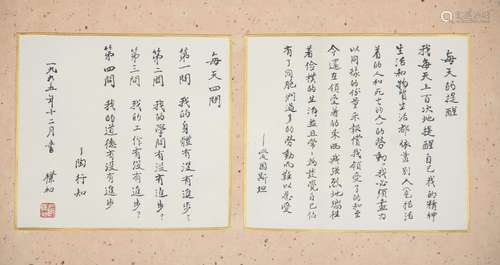 每天的提醒
我每天上百次地提醒自己我的精神
生活和物質生活都依靠别人(包括活
着的人和死去的人)的勞動我必須盡力
以同樣的份量来報償我领受了的和至
今還在领受着的東西我强烈地嚮往
着儉樸的生活並且常為發覺自己佔
有了同胞們過多的勞動而難以忍受
—愛因斯坦
每天四問
第一問 我的身體有没有進步?
第二問 我的學問有没有進步?
第三問 我的工作有没有進步?
第四問 我的道德有没有進步?
—陶行知
一九九五年十二月書 樸初